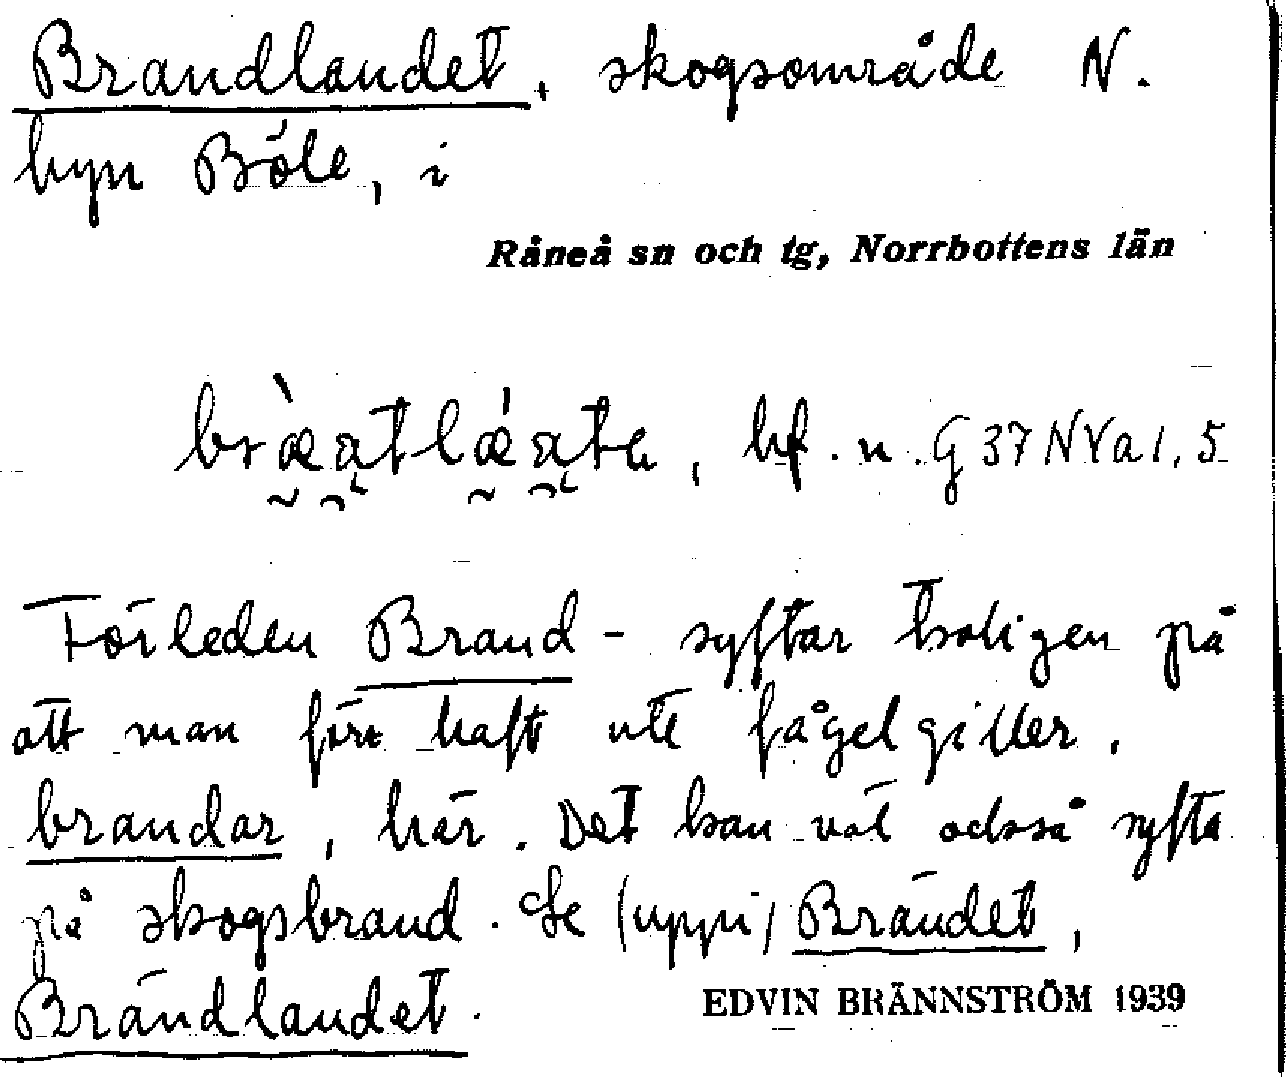 Brandlandet, skogsområde N.
byn Böle, i
Råneå sn och tg, Norrbottens län
bf. n. G 37 NVa1,5
Förleden Brand- syftar troligen på
att man förr haft ute fågelgiller,
brandar, här. Det kan väl också syfta
på skogsbrand. Se (uppi) Brändet,
Brändlandet.
EDVIN BRÄNNSTRÖM 1939